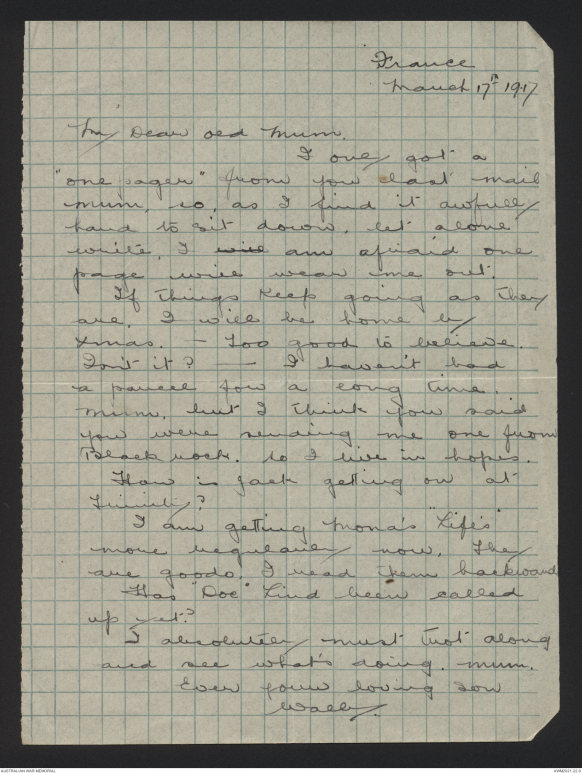 France
March 17th 1917
My Dear old Mum.
I only got a
"one pager" from you last mail
Mum, so, as I find it awfully
hard to sit down, let alone
write, I will am afraid one
page will wear me out.
If things keep going as they
are, I will be home by
Xmas. — Too good to believe.
Isn't it? — I haven't had
a parcel for a long time.
Mum, but I think you said
you were sending me one from
Black rock. so I live in hopes.
How is Jack getting on at
Trinity?
I am getting Mona's "Life's"
more regularly now. They
are goodo. I read them backwards
Has "Doc" Lind been called
up yet?
I absolutely must trot along
and see what's doing. Mum.
Ever your loving son
Wally.
AUSTRALIAN WAR MEMORIAL